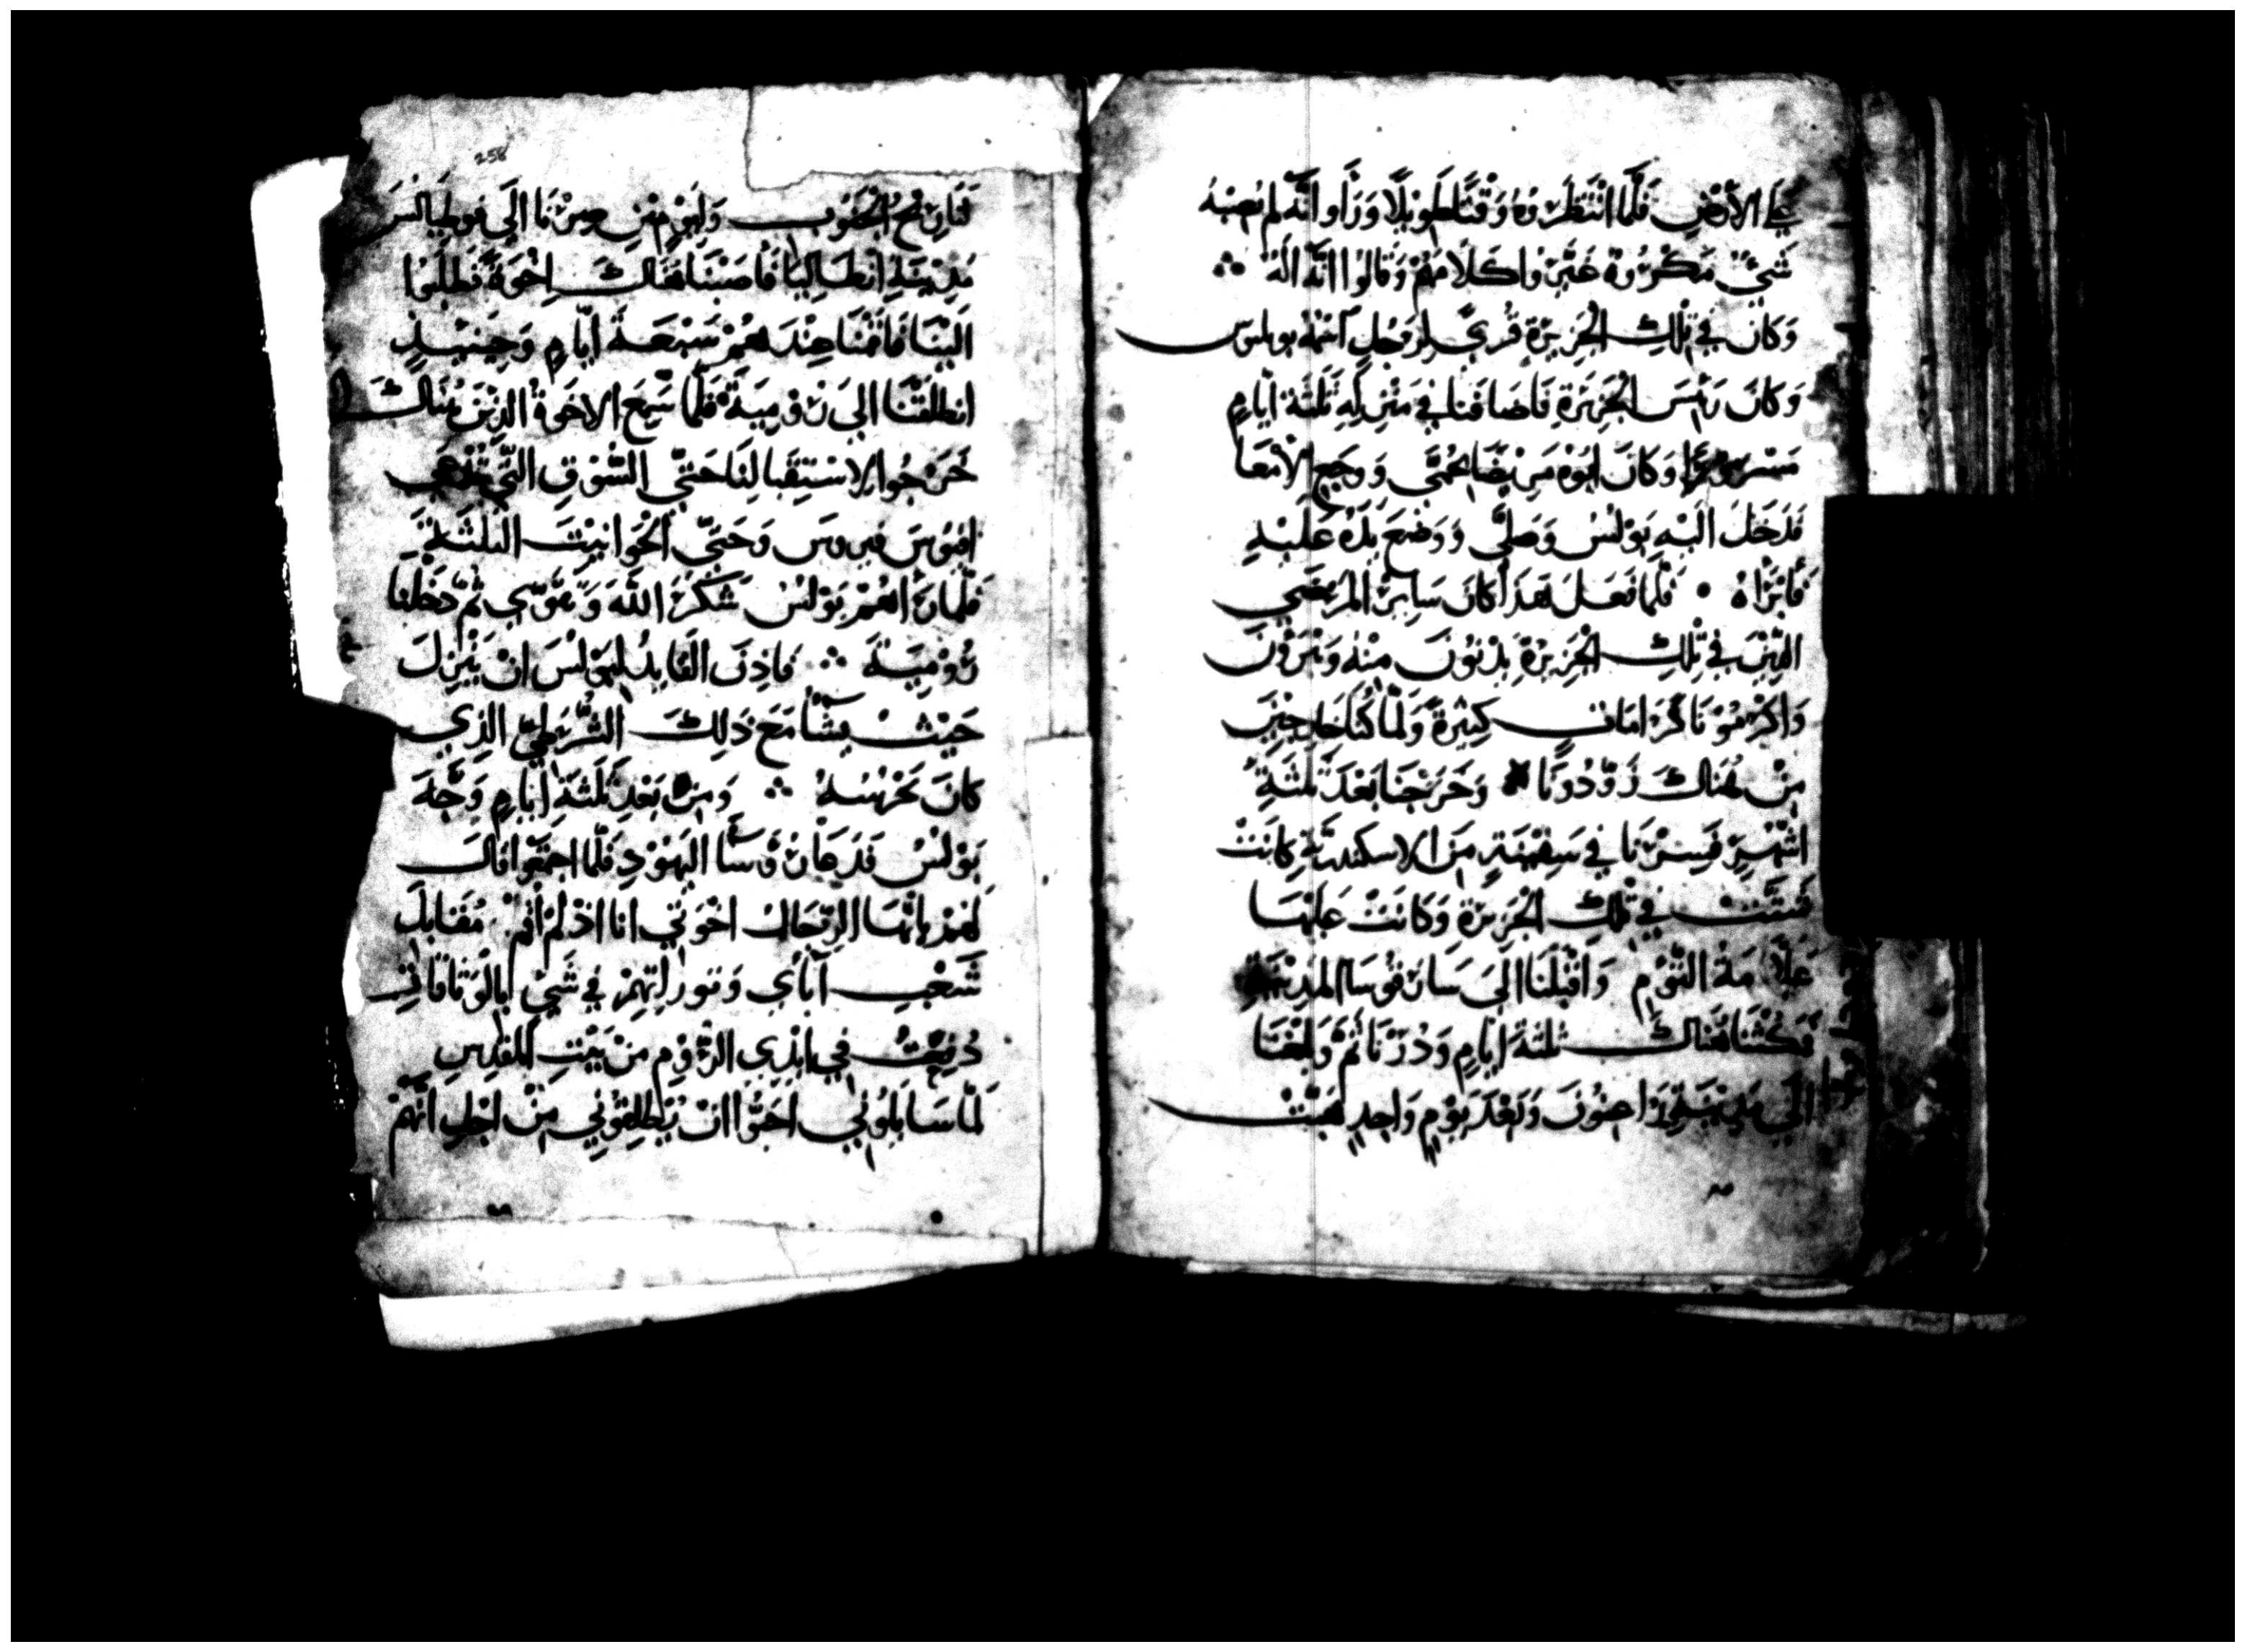 علي الأرْضِ فَلَمَّا انْتَظَرُوهُ وَقْتًا طَوِيْلًا وَرَأَو انَّهُ لَم يُصِبْهُ
شَيْءٌ مَكْرُوهٌ غَيَّرُوا كَلَامَهُمْ وَقَالُوا انَّهُ الَهٌ
وَكَان فِي تِلْكَ الْجَزِيرَةِ قُرًي لِرَجُلٍ اسْمُهُ بولوس
وَكَانَ رَئِيسَ الْجَزِيرَةِ فَاضَافَنَا فِي مَنْزِلِهِ ثَلثَةَ ايَّامٍ
مَسْرُورًا وَكَانَ ابُوْهُ مَرِيْضًا بِحُمَّي وَوَجَعِ الْأَمْعَا
فَدَخَلَ الَيْهِ بَوْلُسُ وَصَلَّي وَوَضَعَ يَدَهُ عَلَيْهِ
فَأَبْرَاهُ فَلَمَّا فَعَلَ هَذَا كَانَ سَايِرُ الْمَرْضَي
الذِيْنَ فِي تِلْكَ الْجَزِيْرَةِ يَدْنُونَ مِنْهُ وَيَبْرَوْنَ
وَاكْرَمُوْنَا كَرَامَاتٍ كَثِيْرَةً وَلَمَّا كُنَّا خَارِجِيْنَ
مِنْ هُنَاكَ زَوَّدُونَا وَخَرَجْنَا بَعْدَ ثَلثَةِ
اشْهُرٍ فَسِرْنَا فِي سَفِيْنَةٍ مِنَ الاسكندريَّةِ كَانَتْ
شَتَّتْ فِي تِلْكَ الْجَزِيْرَةِ وَكَانَتْ عَلَيْهَا
عَلَامَةُ التَّوْمِ وَاقْبَلْنَا الَي سَارَقُوسَا الْمَدِيْنَةِ
فَمَكَثْنَا هُنَاكَ ثَلثَةَ ايَّامٍ وَدُرْنَا ثُمَّ وَبَلَغْنَا
الَي مَدِيْنَةِ رَاغِيُونَ وَبَعْدَ يَوْمٍ وَاحِدٍ هَبَّتْ
258
لَنَا رِيْحُ الْجَنُوبِ وَلِيَوْمَيْنِ صِرْنَا الَي فوطيَالُسَ
مَدِيْنَةِ انطَالِيَا فَأَصَبْنَا هُنَاكَ اخْوَةً فَطَلَبُوا
الَيْنَا فَاقَمْنَا عِنْدَهُمْ سَبْعَةَ ايَّامٍ وَحِيْنَيِذٍ
انطَلَقْنَا الَي رُوْمِيَةَ فَلَمَّا سَمِعَ الاخْوَةُ الذِيْنَ هُنَاكَ
خَرَجُوا لِاسْتِقْبَالِنَا حَتَّي السُّوْقِ التِّي تُدْعَي
افيُوسَ فوروس وَحَتَّي الْحَوَانِيْتَ الثَلثَةِ
فَلَمَّا رَأَهُمْ بَوْلُسُ شَكَرَ اللهَ وَتَقَوَّي ثُمَّ دَخَلْنَا
رُوْمِيَةَ فَاذِنَ الْقَايِدُ لِبَوْلُسَ انْ يَنْزِلَ
حَيْثُ يَشَأُ مَعَ ذَلِكَ الشُّرَطِيِّ الذِي
كَانَ يَحْرُسُهُ وَمِنْ بَعْدِ ثَلثَةِ ايَّامٍ وَجَّهَ
بَوْلُسُ فَدَعَا رُؤَسَأَ الْيَهُوْدِ فَلَمَّا اجْتَمَعُوا قَالَ
لَهُمْ يَا ايُّهَا الرِّجَالُ اخْوَتِي انَا اذ لَمْ أَقُمْ مُقَابِلَ
شَعْبِ آبَأي وَتوراتِهِمْ فِي شَيْ بِالْوَثَاقَاتِ
دُفِعْتُ فِي ايْدِي الرُّوْمِ مِنْ بَيْتِ الْمَقْدِسِ
لَمَّا سَايَلُوْنِي احَبُّوا انْ يُطْلِقُوْنِي مِنْ اجْلِ انَّهُمْ